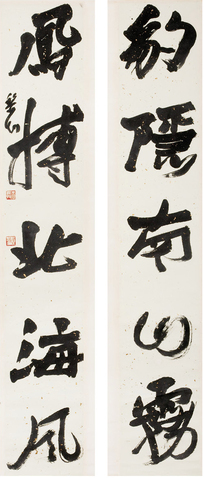 豹隱南山霧
鳳搏北海風